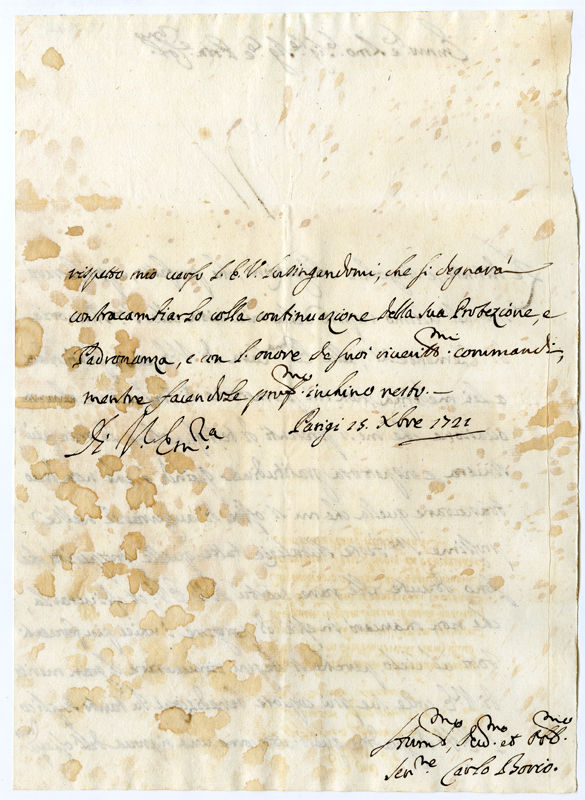 rispetto mio verso l'E.V. lusingandomi, che si degnarà
contracambiarlo colla continuazione della sua Protezione, e
Padronanza, e con l'onore de suoi riveritmi. commandi,
mentre facendole profmo. inchino resto.—
Di V. Emza
Parigi 15. Xbre 1721
Hummo, Devmo. et Obbmo.
Serrne. Carlo Borrio.